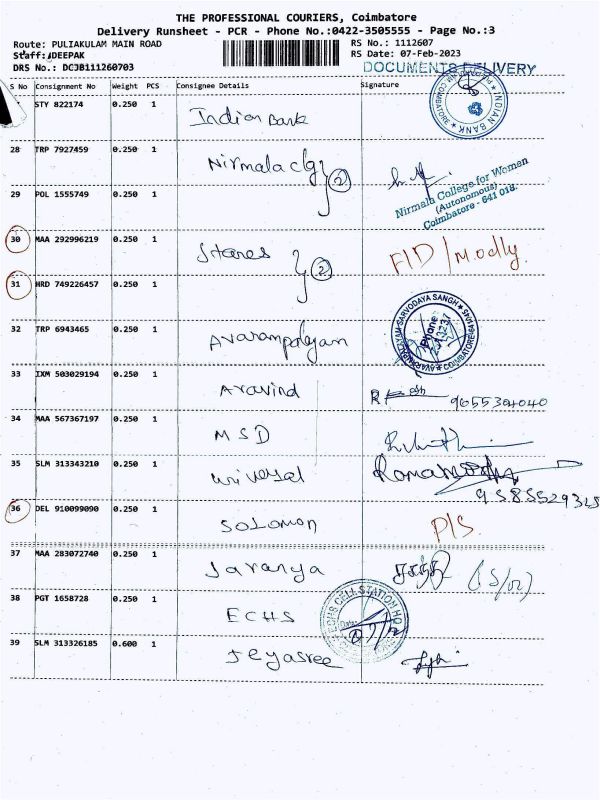 THE PROFESSIONAL COURIERS, Coimbatore
Delivery Runsheet - PCR - Phone No.:0422-3505555 - Page No.:3
Route: PULIAKULAM MAIN ROAD RS No.: 1112607
Staff: DEEPAK RS Date: 07-Feb-2023
DRS No.: DCJB111260703 DOCUMENTS DELIVERY
S No Consignment No Weight PCS Consignee Details Signature
STY 822174 0.250 1 Indian Bank INDIAN BANK
28 TRP 7927449 0.250 1 Nirmala clg 2
Nirmala College for Women
(Autonomous)
Coimbatore - 641 018.
29 POL 1555749 0.250 1
30 MAA 292996219 0.250 1 Stanes 2
31 HRD 749226457 0.250 1
SARVODAYA SANGH
Phone
32 TRP 6943465 0.250 1 Avarampalayam
33 IXM 503029194 0.250 1 Aravind 9655304040
34 MAA 567367197 0.250 1 MSD
35 SLM 313343210 0.250 1 universal
36 DEL 910099090 0.250 1 Solomon P/S
37 MAA 283072740 0.250 1 Saranya
38 PGT 1658728 0.250 1 ECHS ECHS CELL STATION HQ
39 SLM 313326185 0.600 1 Jeyasree